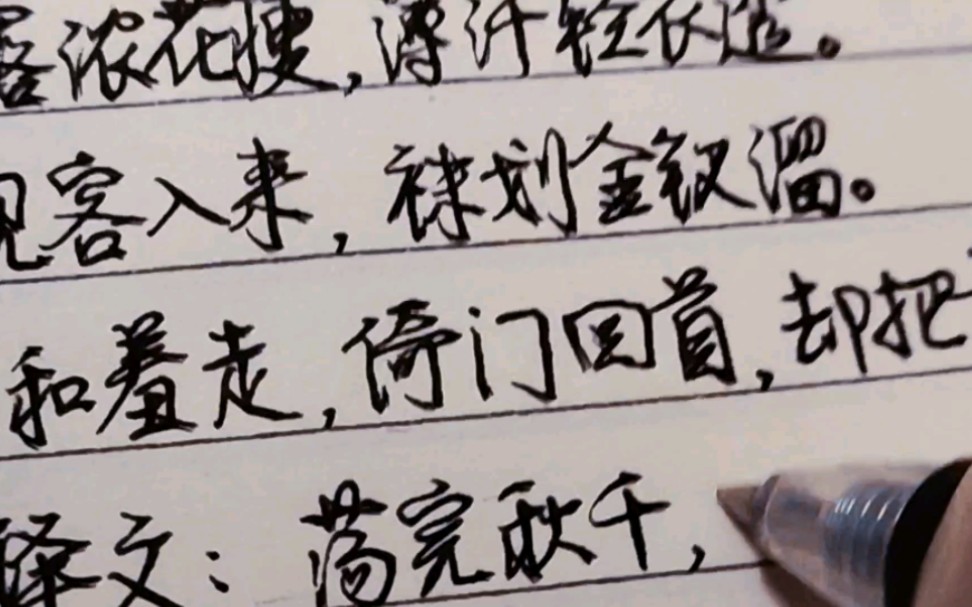 露浓花瘦,薄汗轻衣透。
见客入来,袜划金钗溜。
和羞走,倚门回首,却把
译文:荡完秋千,